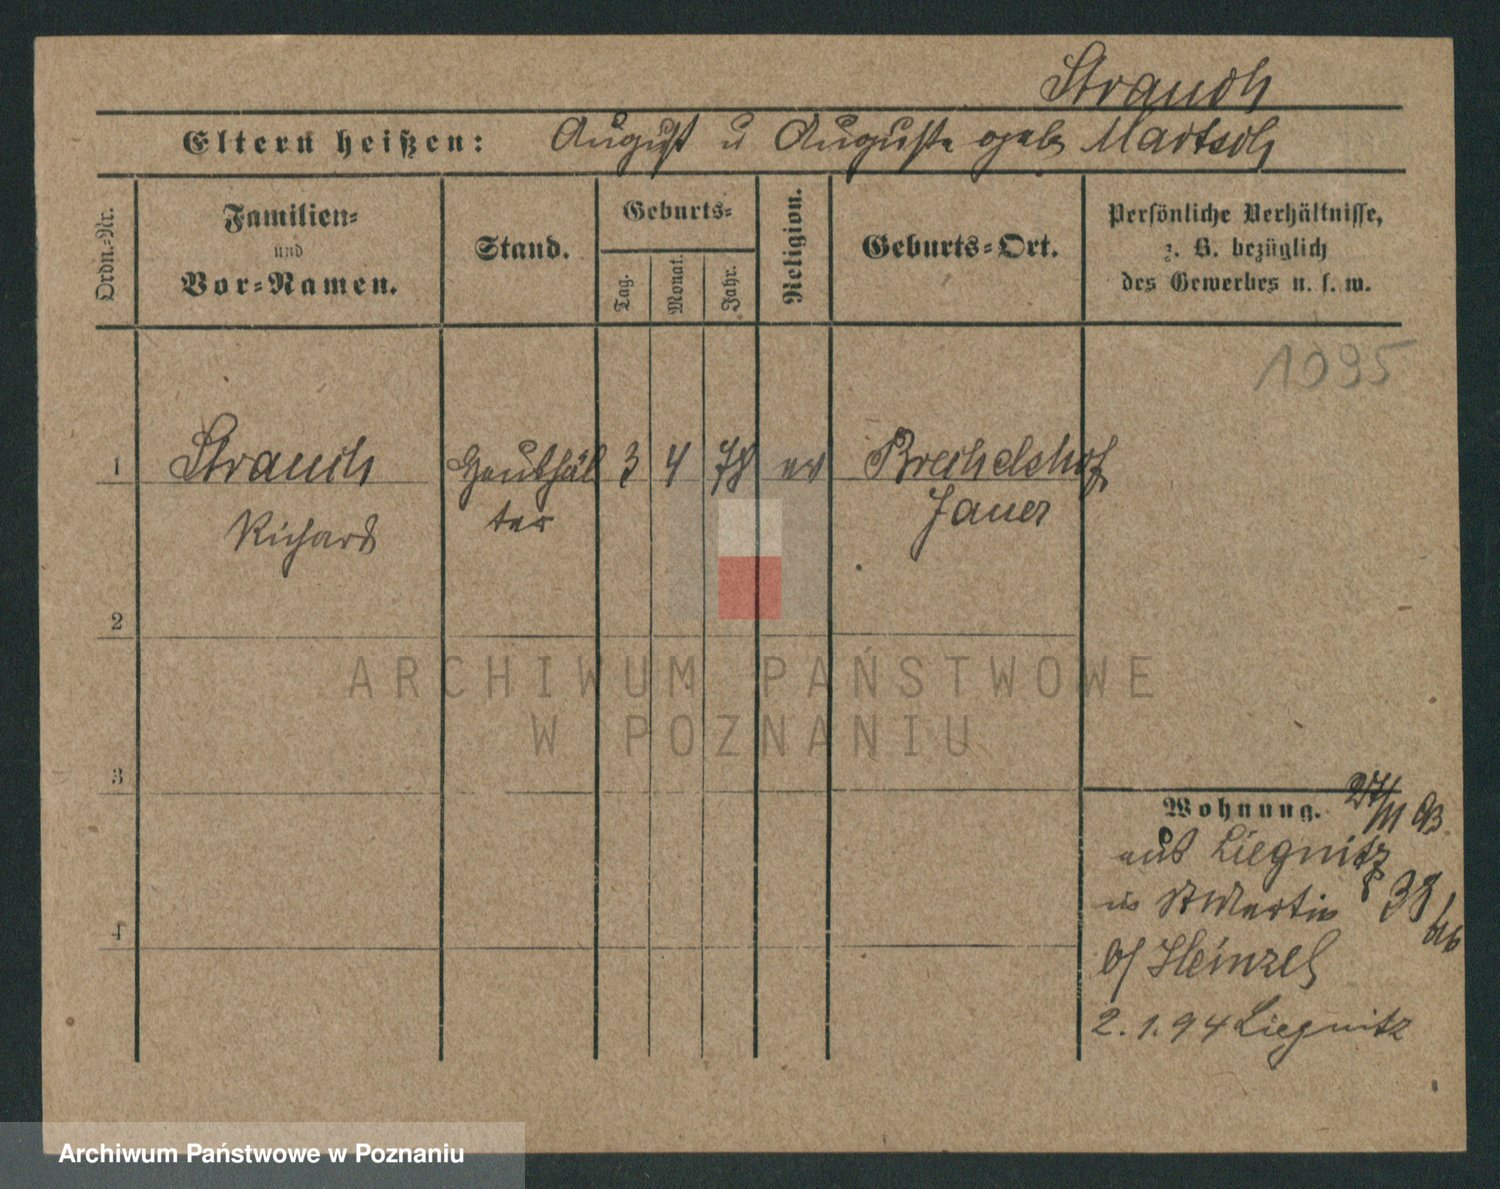 Strauch
Eltern heißen: August u Auguste geb Martsch
Ordn.-Nr.
Familien-
und
Vor-Namen.
Stand.
Geburts-
Tag.
Monat.
Jahr.
Religion.
Geburts-Ort.
Persönliche Verhältnisse,
z. B. bezüglich
des Gewerbes u. s. w.
1095
1 Strauch 3 4 78 ev Brechelshof
Richard ter Jauer
2
3
4
Wohnung.
aus Liegnitz
in St Martin 38
b/ Heinzel
2.1.94 Liegnitz
ARCHIWUM PAŃSTWOWE
W POZNANIU
Archiwum Państwowe w Poznaniu